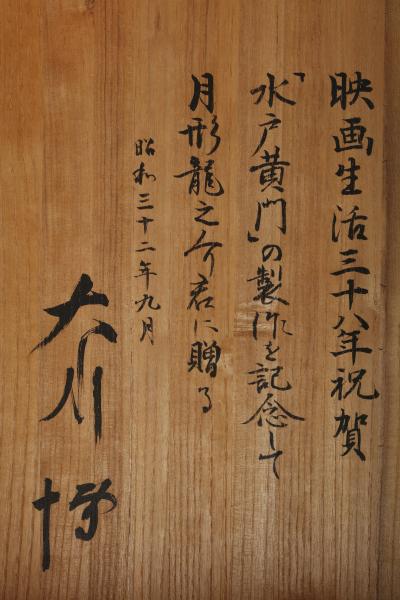 映画生活三十八年祝賀
「水戸黄門」の製作を記念して
月形龍之介君に贈る
昭和三十二年九月
大川博